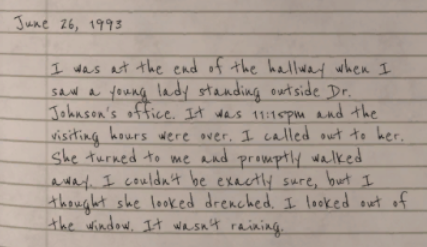 June 26, 1993
I was at the end of the hallway when I
saw a young lady standing outside Dr.
Johnson's office. It was 11:15pm and the
visiting hours were over. I called out to her.
She turned to me and promptly walked
away. I couldn't be exactly sure, but I
thought she looked drenched. I looked out of
the window. It wasn't raining.